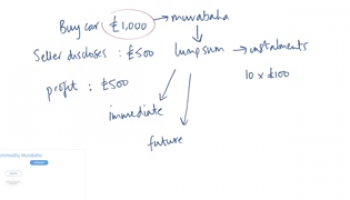 Buy car £1,000 → murabaha
Seller discloses : £500 lumpsum → instalments
profit : £500
10 x £100
immediate
future
Commodity Murabaha